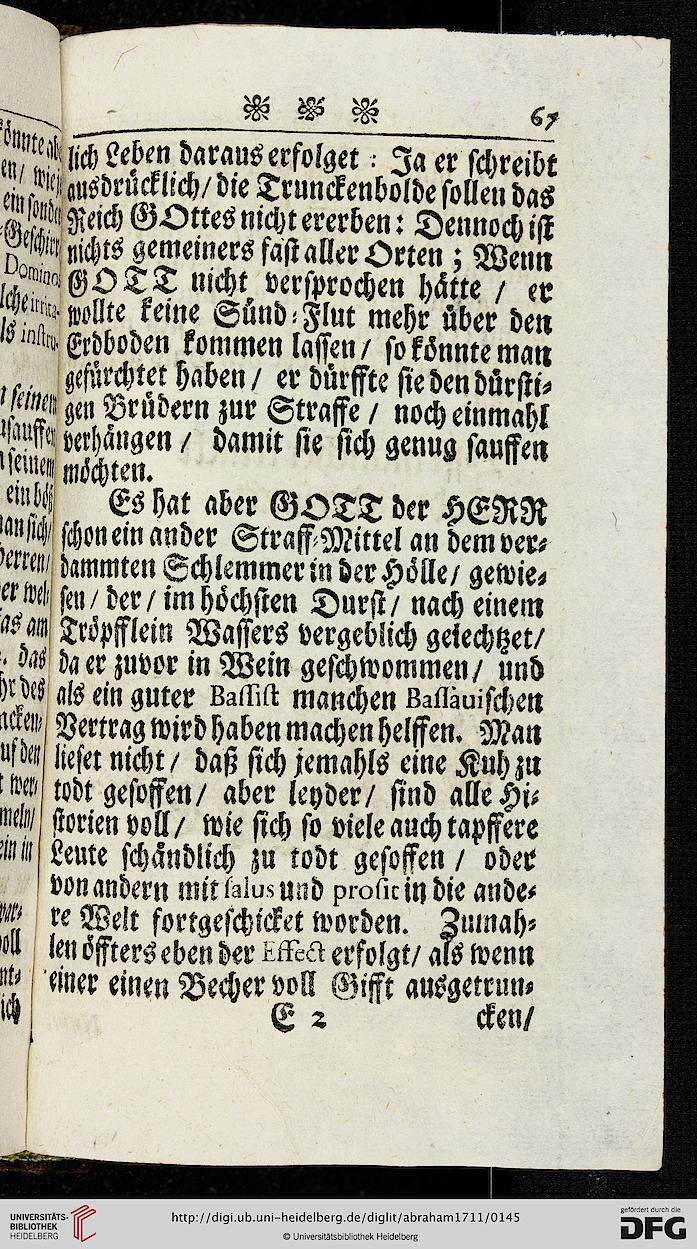 67
lich Leben daraus erfolget : Ja er schreibt
ausdrücklich/ die Trunckenbolde sollen das
Reich GOttes nicht ererben: Dennoch ist
nichts gemeiners fast aller Orten ; Wenn
GOTT nicht versprochen hätte / er
wollte keine Sünd-Flut mehr über den
Erdboden kommen lassen/ so könnte man
gefürchtet haben/ er dürffte sie den dürsti-
gen Brüdern zur Straffe / noch einmahl
verhängen / damit sie sich genug sauffen
möchten.
Es hat aber GOTT der HERR
schon ein ander Straff-Mittel an dem ver-
dammten Schlemmer in der Hölle/ gewie-
sen/ der/ im höchsten Durst/ nach einem
Tröpfflein Wassers vergeblich gelechtzet/
da er zuvor in Wein geschwommen/ und
als ein guter Bassist manchen Bassàuischen
Vertrag wird haben machen helffen. Man
lieset nicht/ daß sich jemahls eine Kuh zu
todt gesoffen/ aber leyder/ sind alle Hi-
storien voll/ wie sich so viele auch tapffere
Leute schändlich zu todt gesoffen / oder
von andern mit salus und prosit in die ande-
re Welt fortgeschicket worden. Zumah-
len öffters eben der Effect erfolgt/ als wenn
einer einen Becher voll Gifft ausgetrun-
E 2 cken/
könnte ab
en/ wie
ein sonde
Geschirr
Domino
lche irrita-
ls instru-
seinem
sauffe
seinem
ein böß
man sich/
er wel-
as am
. das
hr des
ncken-
uf den
wer-
meln/
ein in
voll
nt-
ich
UNIVERSITÄTS-
BIBLIOTHEK
HEIDELBERG
http://digi.ub.uni-heidelberg.de/diglit/abraham1711/0145
© Universitätsbibliothek Heidelberg
gefördert durch die
DFG